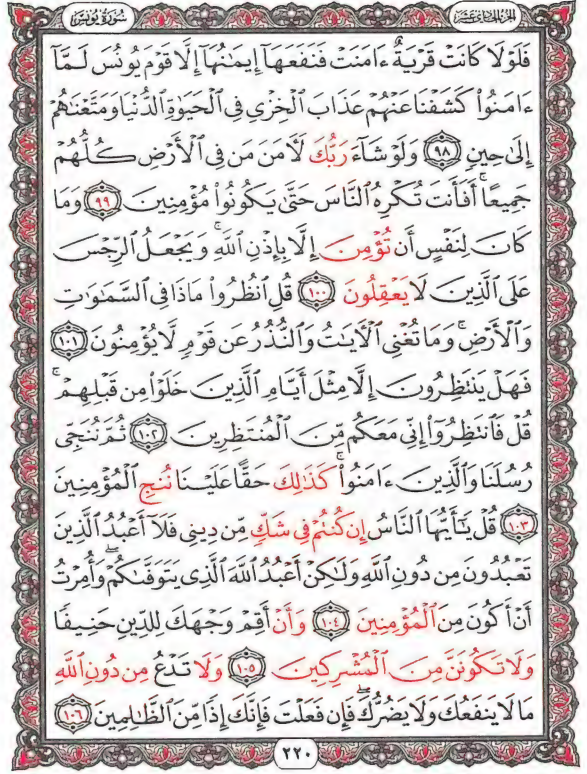 سُورَةُ يُونُسَ
الجزء الحادي عشر
فَلَوْلَا كَانَتْ قَرْيَةٌ ءَامَنَتْ فَنَفَعَهَآ إِيمَٰنُهَآ إِلَّا قَوْمَ يُونُسَ لَمَّآ
ءَامَنُوا۟ كَشَفْنَا عَنْهُمْ عَذَابَ ٱلْخِزْىِ فِى ٱلْحَيَوٰةِ ٱلدُّنْيَا وَمَتَّعْنَٰهُمْ
إِلَىٰ حِينٍ ٩٨ وَلَوْ شَآءَ رَبُّكَ لَءَامَنَ مَن فِى ٱلْأَرْضِ كُلُّهُمْ
جَمِيعًا ۚ أَفَأَنتَ تُكْرِهُ ٱلنَّاسَ حَتَّىٰ يَكُونُوا۟ مُؤْمِنِينَ ٩٩ وَمَا
كَانَ لِنَفْسٍ أَن تُؤْمِنَ إِلَّا بِإِذْنِ ٱللَّهِ ۚ وَيَجْعَلُ ٱلرِّجْسَ
عَلَى ٱلَّذِينَ لَا يَعْقِلُونَ ١٠٠ قُلِ ٱنظُرُوا۟ مَاذَا فِى ٱلسَّمَٰوَٰتِ
وَٱلْأَرْضِ ۚ وَمَا تُغْنِى ٱلْءَايَٰتُ وَٱلنُّذُرُ عَن قَوْمٍ لَّا يُؤْمِنُونَ ١٠١
فَهَلْ يَنتَظِرُونَ إِلَّا مِثْلَ أَيَّامِ ٱلَّذِينَ خَلَوْا۟ مِن قَبْلِهِمْ ۚ
قُلْ فَٱنتَظِرُوٓا۟ إِنِّى مَعَكُم مِّنَ ٱلْمُنتَظِرِينَ ١٠٢ ثُمَّ نُنَجِّى
رُسُلَنَا وَٱلَّذِينَ ءَامَنُوا۟ ۚ كَذَٰلِكَ حَقًّا عَلَيْنَا نُنجِ ٱلْمُؤْمِنِينَ
١٠٣ قُلْ يَٰٓأَيُّهَا ٱلنَّاسُ إِن كُنتُمْ فِى شَكٍّ مِّن دِينِى فَلَآ أَعْبُدُ ٱلَّذِينَ
تَعْبُدُونَ مِن دُونِ ٱللَّهِ وَلَٰكِنْ أَعْبُدُ ٱللَّهَ ٱلَّذِى يَتَوَفَّىٰكُمْ ۖ وَأُمِرْتُ
أَنْ أَكُونَ مِنَ ٱلْمُؤْمِنِينَ ١٠٤ وَأَنْ أَقِمْ وَجْهَكَ لِلدِّينِ حَنِيفًا
وَلَا تَكُونَنَّ مِنَ ٱلْمُشْرِكِينَ ١٠٥ وَلَا تَدْعُ مِن دُونِ ٱللَّهِ
مَا لَا يَنفَعُكَ وَلَا يَضُرُّكَ ۖ فَإِن فَعَلْتَ فَإِنَّكَ إِذًا مِّنَ ٱلظَّٰلِمِينَ ١٠٦
٢٢٠